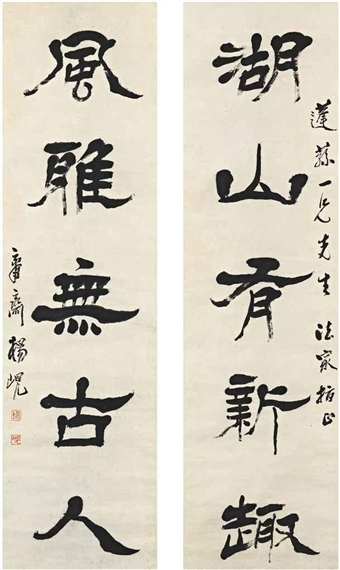 湖山有新趣
蓬蓀一兄先生法家指正
風雅無古人
庸齋楊峴